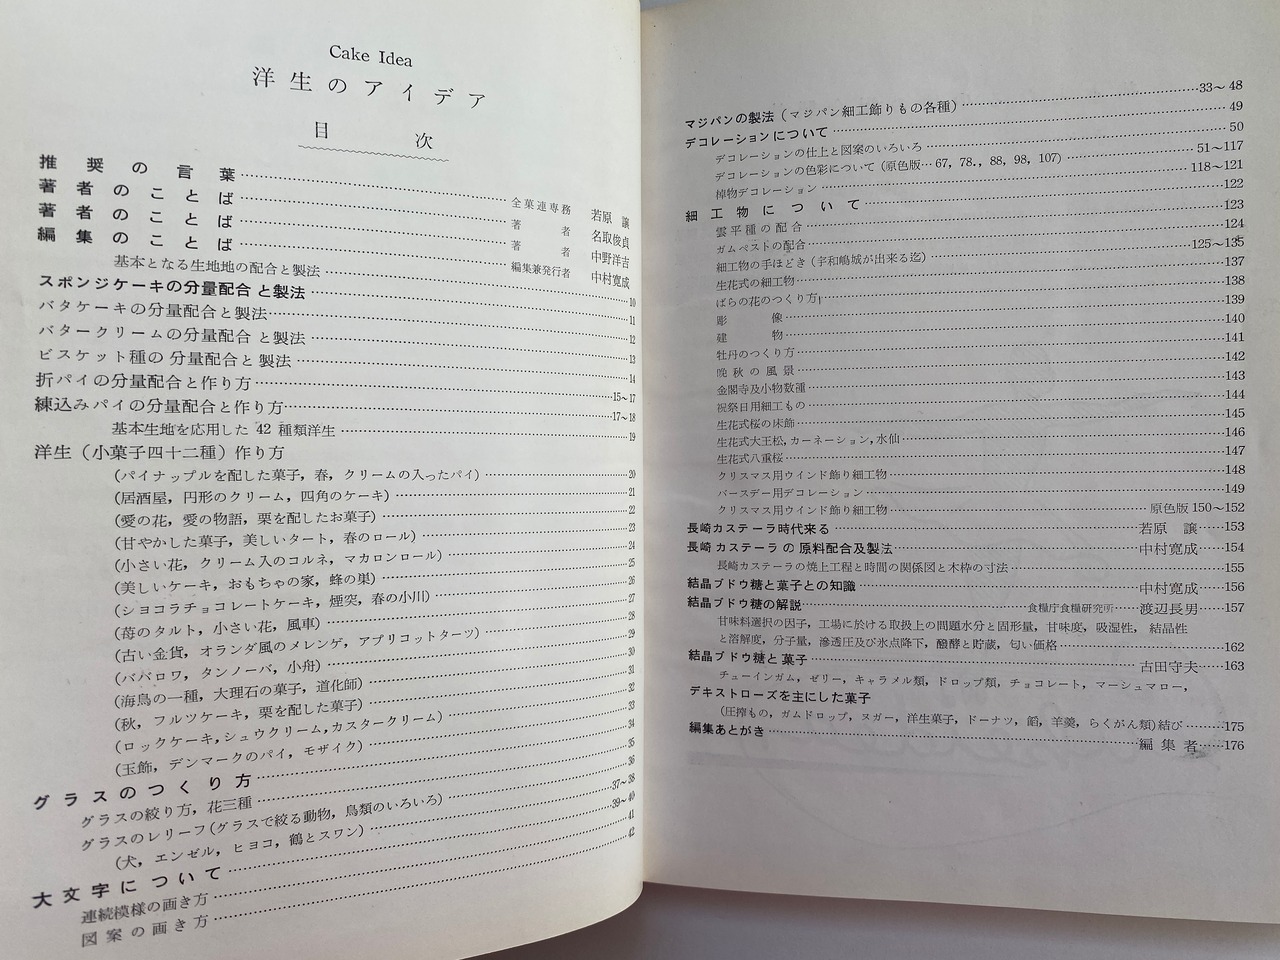 Cake Idea
洋生のアイデア
目次
推奨の言葉……全菓連専務 若原 譲
著者のことば……著者 名取俊貞
著者のことば……著者 中野洋吉
編集のことば……編集兼発行者 中村寛成
基本となる生地地の配合と製法……10
スポンジケーキの分量配合と製法……11
バタケーキの分量配合と製法……12
バタークリームの分量配合と製法……13
ビスケット種の分量配合と製法……14
折パイの分量配合と作り方……15~17
練込みパイの分量配合と作り方……17~18
基本生地を応用した42種類洋生……19
洋生（小菓子四十二種）作り方
(パイナップルを配した菓子，春，クリームの入ったパイ)……20
(居酒屋，円形のクリーム，四角のケーキ)……21
(愛の花，愛の物語，栗を配したお菓子)……22
(甘やかした菓子，美しいタート，春のロール)……23
(小さい花，クリーム入のコルネ，マカロンロール)……24
(美しいケーキ，おもちゃの家，蜂の巣)……25
(ショコラチョコレートケーキ，煙突，春の小川)……26
(苺のタルト，小さい花，風車)……27
(古い金貨，オランダ風のメレンゲ，アプリコットターツ)……28
(ババロワ，タンノーバ，小舟)……29
(海鳥の一種，大理石の菓子，道化師)……30
(秋，フルツケーキ，栗を配した菓子)……31
(ロックケーキ，シュウクリーム，カスタークリーム)……32
(玉飾，デンマークのパイ，モザイク)……33
グラスのつくり方……34
グラスの絞り方，花三種……35
グラスのレリーフ(グラスで絞る動物，鳥類のいろいろ)……36
(犬，エンゼル，ヒヨコ，鶴とスワン)……37~38
大文字について……39~40
連続模様の画き方……41
図案の画き方……42
マジパンの製法（マジパン細工飾りもの各種）……33~48
デコレーションについて……49
デコレーションの仕上と図案のいろいろ……50
デコレーションの色彩について（原色版…67，78.，88，98，107）……51~117
棹物デコレーション……118~121
細工物について……122
雲平種の配合……123
ガムペストの配合……124
細工物の手ほどき（宇和嶋城が出来る迄）……125~135
生花式の細工物……137
ばらの花のつくり方……138
彫像……139
建物……140
牡丹のつくり方……141
晩秋の風景……142
金閣寺及小物数種……143
祝祭日用細工もの……144
生花式桜の床飾……145
生花式大王松，カーネーション，水仙……146
生花式八重桜……147
クリスマス用ウインド飾り細工物……148
バースデー用デコレーション……149
クリスマス用ウインド飾り細工物……原色版150~152
長崎カステーラ時代来る……若原 譲……153
長崎カステーラの原料配合及製法……中村寛成……154
長崎カステーラの焼上工程と時間の関係図と木枠の寸法……155
結晶ブドウ糖と菓子との知識……中村寛成……156
結晶ブドウ糖の解説……食糧庁食糧研究所……渡辺長男……157
甘味料選択の因子，工場に於ける取扱上の問題水分と固形量，甘味度，吸湿性，結晶性
と溶解度，分子量，滲透圧及び氷点降下，醗酵と貯蔵，匂い価格……162
結晶ブドウ糖と菓子……古田守夫……163
チューインガム，ゼリー，キャラメル類，ドロップ類，チョコレート，マーシュマロー，
デキストローズを主にした菓子
(圧搾もの，ガムドロップ，ヌガー，洋生菓子，ドーナツ，餡，羊羹，らくがん類)結び……175
編集あとがき……編集者……176